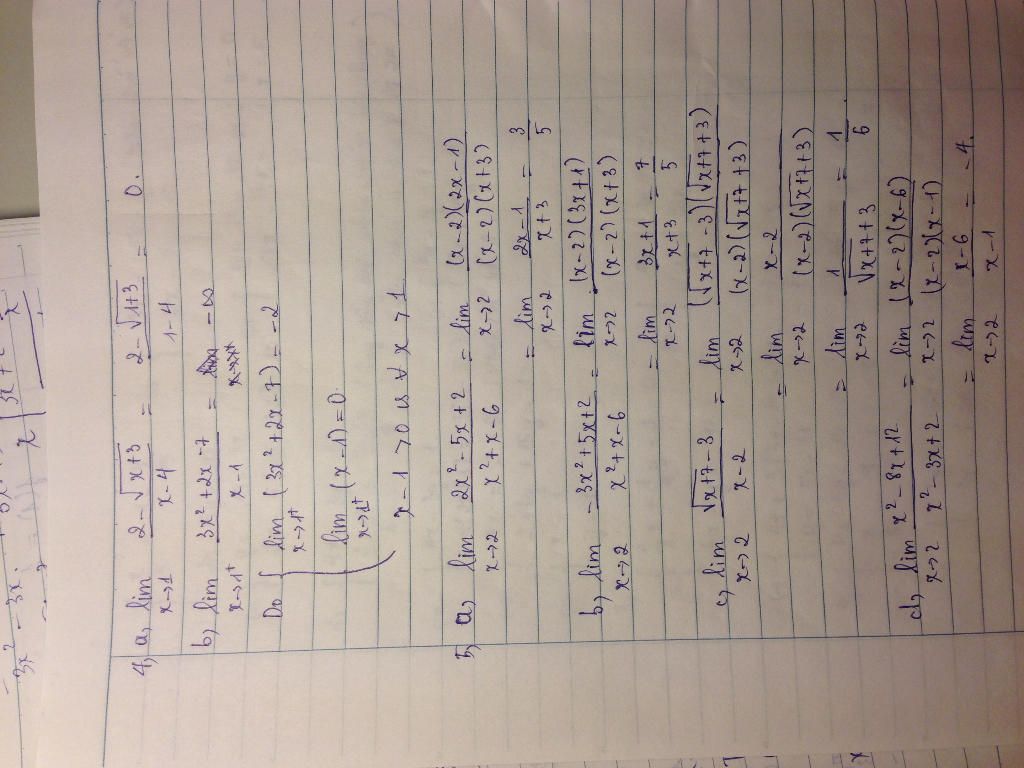 4, a, lim x→1 (2 - √(x+3))/(x - 4) = (2 - √(1+3))/(1 - 4) = 0.
b, lim x→1⁺ (3x² + 2x - 7)/(x - 1) = -∞
Do { lim x→1⁺ (3x² + 2x - 7) = -2
lim x→1⁺ (x - 1) = 0
x - 1 > 0 ∀ x > 1
5, a, lim x→2 (2x² - 5x + 2)/(x² + x - 6) = lim x→2 ((x - 2)(2x - 1))/((x - 2)(x + 3))
= lim x→2 (2x - 1)/(x + 3) = 3/5
b, lim x→2 (-3x² + 5x + 2)/(x² + x - 6) = lim x→2 ((x - 2)(3x + 1))/((x - 2)(x + 3))
= lim x→2 (3x + 1)/(x + 3) = 7/5
c, lim x→2 (√(x+7) - 3)/(x - 2) = lim x→2 ((√(x+7) - 3)(√(x+7) + 3))/((x - 2)(√(x+7) + 3))
= lim x→2 (x - 2)/((x - 2)(√(x+7) + 3))
= lim x→2 1/(√(x+7) + 3) = 1/6.
d, lim x→2 (x² - 8x + 12)/(x² - 3x + 2) = lim x→2 ((x - 2)(x - 6))/((x - 2)(x - 1))
= lim x→2 (x - 6)/(x - 1) = -4.